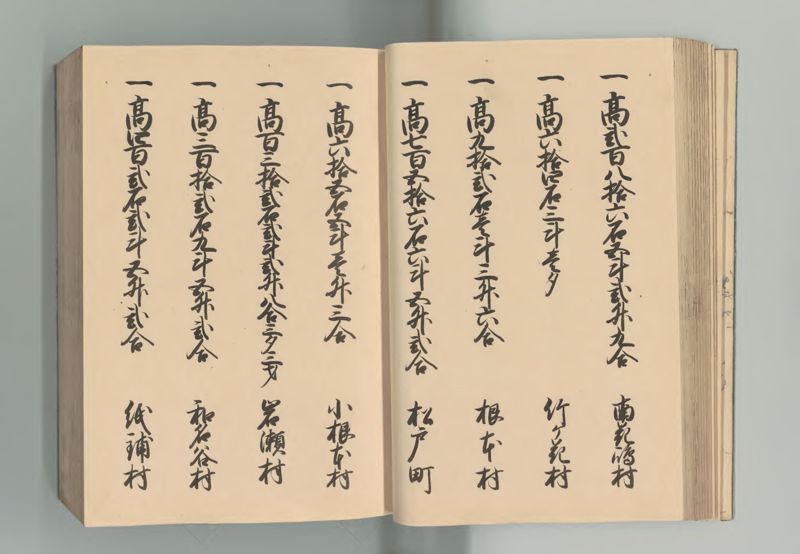 一高弐百八拾六石五斗弐升九合 南花嶋村
一高六拾四石三斗壱夕 竹ヶ花村
一高九拾弐石壱斗三升六合 根本村
一高七百五拾六石六斗五升弐合 松戸町
一高六拾五石五斗壱升三合 小根本村
一高百三拾弐石弐斗弐升八合三夕三才 岩瀬村
一高三百拾弐石九斗五升弐合 和名谷村
一高四百弐石弐斗五升弐合 紙鋪村